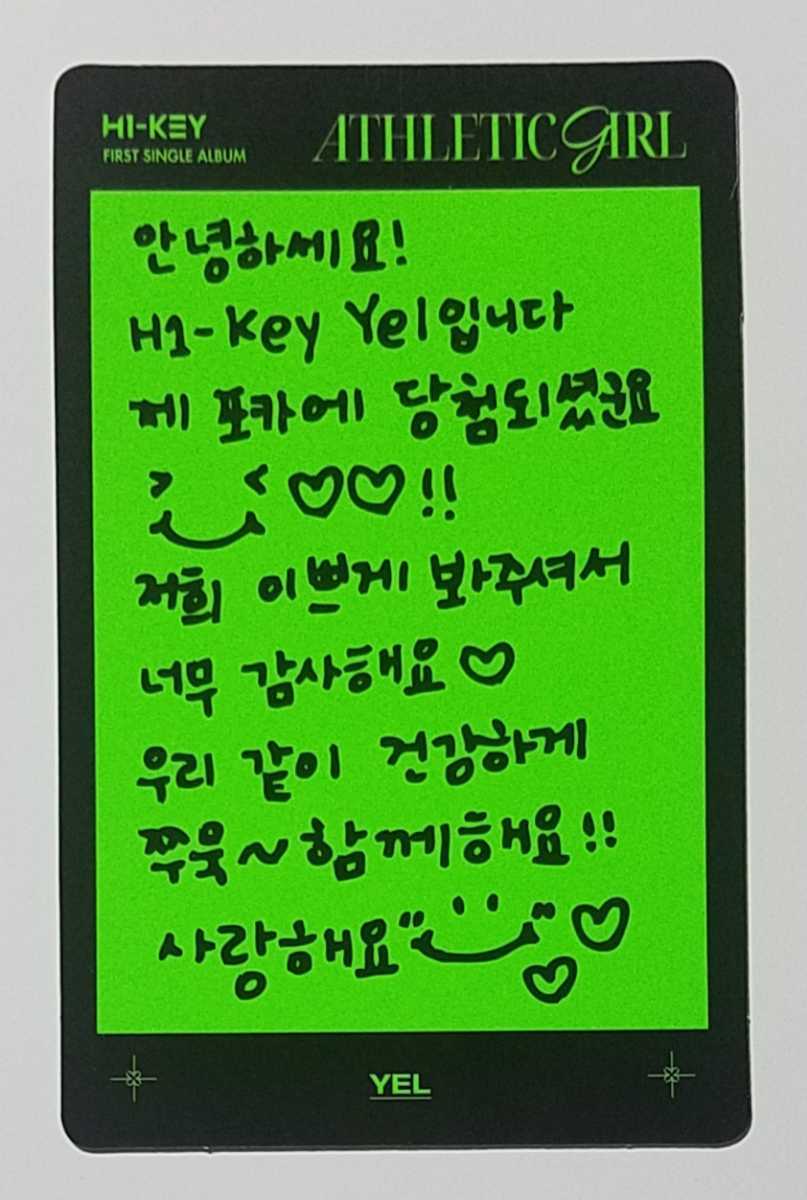 H1-KEY
FIRST SINGLE ALBUM
ATHLETIC GIRL
안녕하세요!
H1-Key Yel입니다
제 포카에 당첨되셨군요
♡♡!!
저희 이쁘게 봐주셔서
너무 감사해요♡
우리 같이 건강하게
쭈욱~함께해요!!
사랑해요 ♡♡
YEL